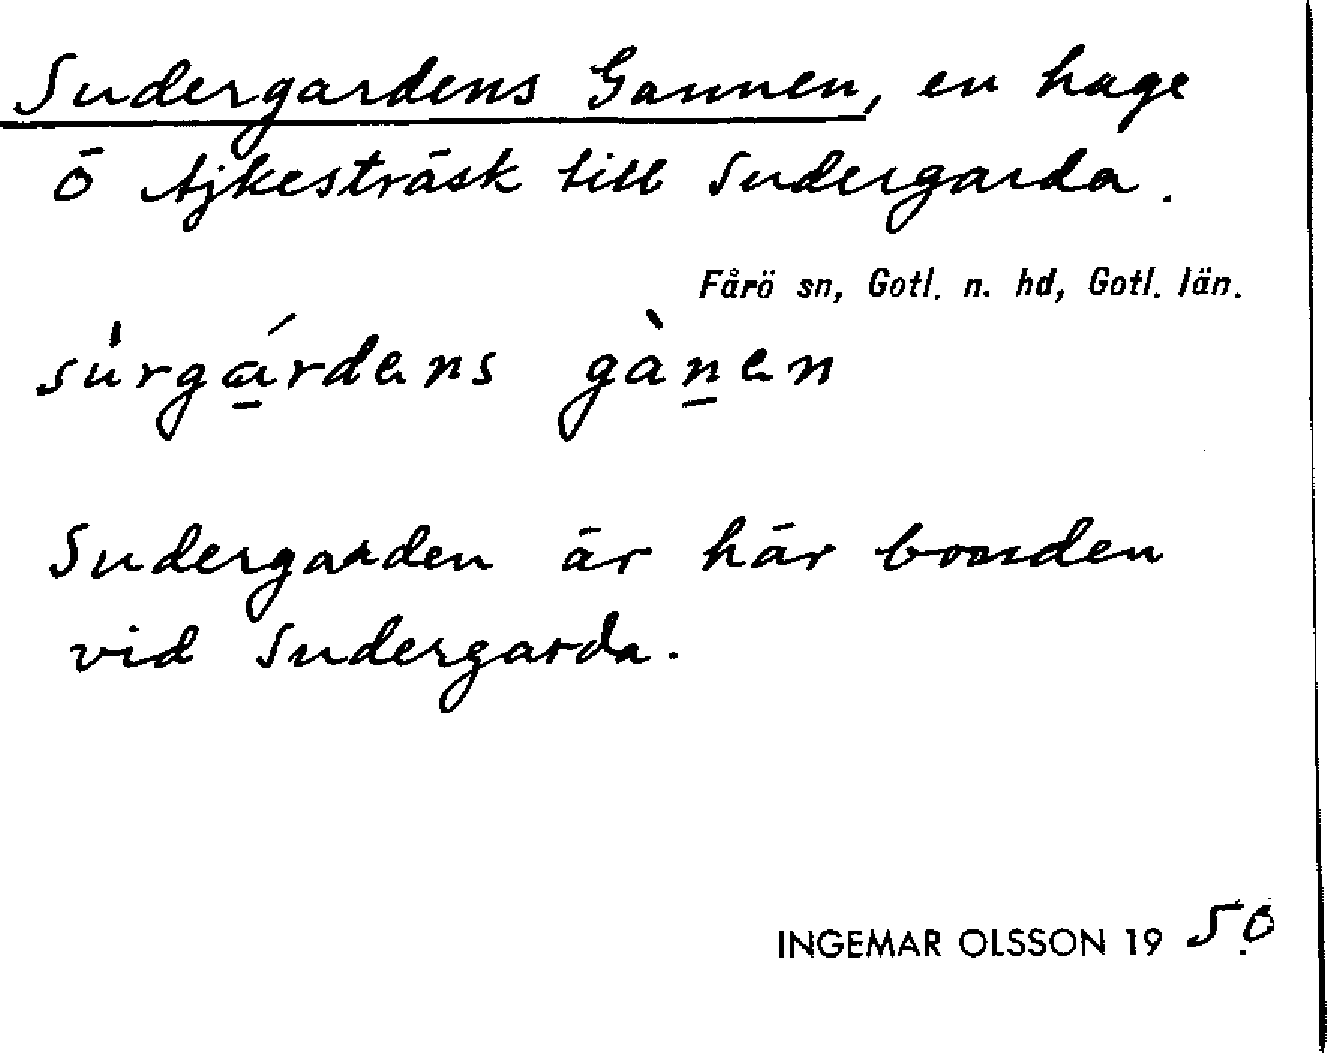 Sudergardens Gannen, en hage
ö Ajkesträsk till Sudergarda.
Fårö sn, Gotl. n. hd, Gotl. län.
su̍rgá̱rdens gàṉen
Sudergarden är här bonden
vid Sudergarda.
INGEMAR OLSSON 19 50